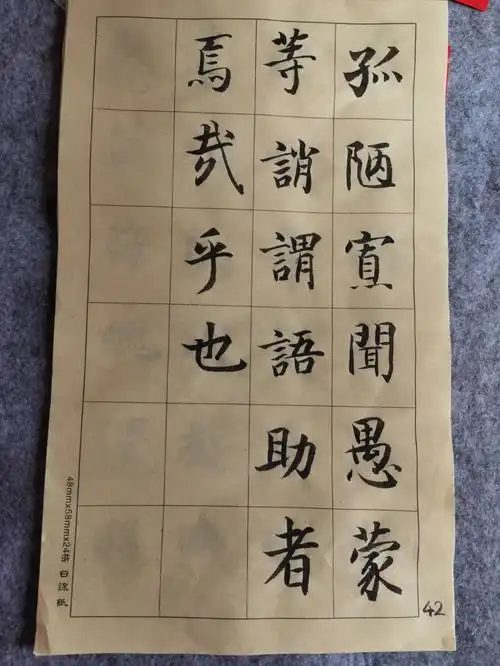 孤陋寡聞愚蒙
等誚謂語助者
焉哉乎也
48mmx58mmx24
42